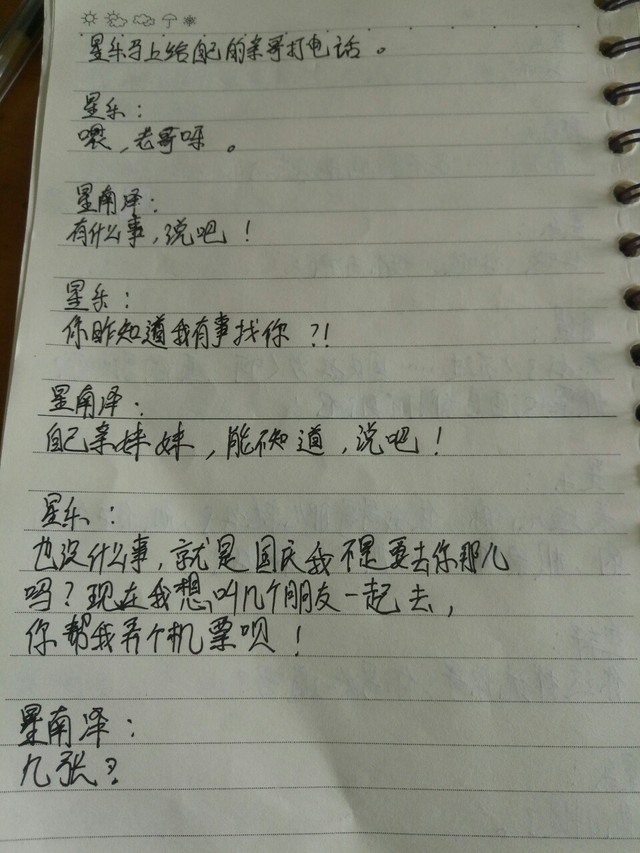 星乐马上给配的亲哥打电话。
星乐：
喂，老哥呀。
星南泽：
有什么事，说吧！
星乐：
你昨知道我有事找你？！
星南泽：
自己亲妹妹，能不知道，说吧！
星乐：
也没什么事，就是国庆我不是要去你那儿
吗？现在我想叫几个朋友一起去，
你帮我弄个机票呗！
星南泽：
几张？